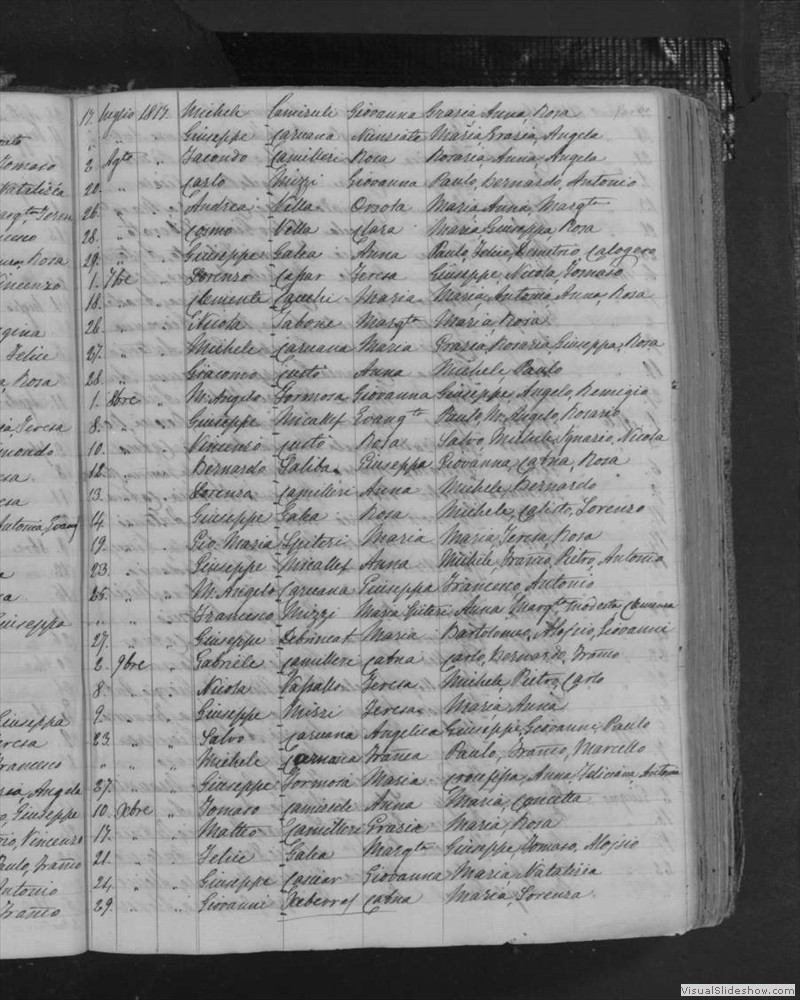 ato
Tomaso
Natalizia
Rosa
Vincenzo
gina
Felice
Rosa
Teresa
mondo
esa
esa
Antonia, Evang
a
ca
Giuseppa
Giuseppa
eresa
Francesco
Angela
Giuseppe
Vincenzo
Paulo, Franco
Antonio
Franco
17. Luglio 1817. Michele Camisuli Giovanna Grazia, Anna, Rosa
" " . Giuseppe Caruana Nunziata Maria, Grazia, Angela
2 Agto " Facondo Camilleri Rosa Rosaria, Anna, Angela
20. " . Carlo Mizzi Giovanna Paulo, Bernardo, Antonio
26. " . Andrea Villa Orsola Maria, Anna, Margta
28. " . Cosmo Vella Clara Maria, Giuseppa, Rosa
29. " . Giuseppe Galea Anna Paulo, Felice, Demetrio, Calogero
1. 7bre " Lorenzo Caspar Teresa Giuseppe, Nicola, Tomaso
18. " Clemente Cauchi Maria Maria, Antonia, Anna, Rosa
26. " Nicola Tabone Margta Maria, Rosa
27. " . Michele Caruana Maria Grazia, Rosaria, Giuseppa, Rosa
28. " Giacomo Custo Anna Michele, Paulo
1. 8bre " M. Angelo Formosa Giovanna Giuseppe, Angelo, Remigio
8. " Giuseppe Micallef Evangta Paulo, M. Angelo, Rosario
10. " Vincenzo Custo Rosa Salvo, Michele, Ignazio, Nicola
12. " Bernardo Saliba Giuseppa Giovanna, Catna, Rosa
13. " Lorenza Camilleri Anna Michele, Bernardo
14. " Giuseppe Galea Rosa Michele, Calisto, Lorenzo
19. " Gio. Maria Spiteri Maria Maria, Teresa, Rosa
23. " Giuseppe Micallef Anna Michele, Franco, Pietro, Antonio
25. " M. Angelo Caruana Giuseppa Francesco, Antonio
" " Francesco Mizzi Maria Spiteri Anna, Margta, Modesta, Clemenza
27. " Giuseppe Debrincat Maria Bartolomeo, Alojsio, Giovanni
2. 9bre " Gabriele Camilleri Catna Carlo, Bernardo, Franco
8. " " Nicola Vassallo Teresa Michele, Pietro, Carlo
9. " " Giuseppe Mizzi Teresa Maria, Anna
23. " " Salvo Caruana Angelica Giuseppe, Giovanni, Paulo
" " " Michele Caruana Franca Paulo, Franco, Marcello
27. " " Giuseppe Formosa Maria Giuseppa, Anna, Feliciana, Antonia
10. Xbre " Tomaso Camisuli Anna Maria, Concetta
17. " " Matteo Camilleri Grazia Maria, Rosa
21. " " Felice Galea Margta Giuseppe, Tomaso, Alojsio
24. " " Giuseppe Cassar Giovanna Maria, Natalizia
29. " " Giovanni Xeberras Catna Maria, Lorenza
VisualSlideshow.com